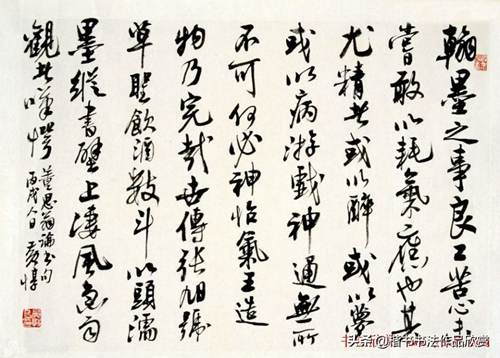 翰墨之事良工苦心未
嘗敢以耗氣應也其
尤精者或以醉或以夢
或以病游戲神通無所
不可何必神怡氣王造
物乃完哉世傳張旭號
草聖飲酒數斗以頭濡
墨縱書壁上淒風急雨
觀者嘆愕
董思翁論書句
丙戌人日
头条@楷书书法作品欣赏